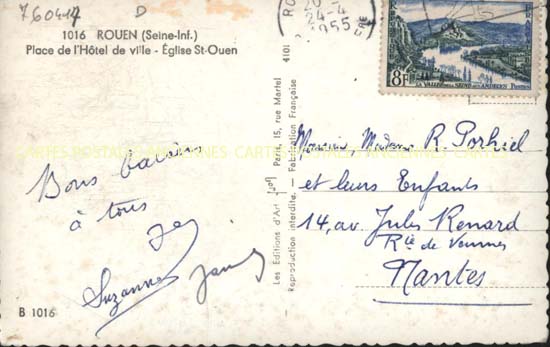 760414 D
1016 ROUEN (Seine-Inf.)
Place de l'Hôtel de ville - Église St-Ouen
Bons baisers
à tous
Suzanne
B 1016
4101
Les Editions d'Art Paris, 15, rue Martel
Reproduction interdite. - Fabrication Française
24-4
1955
8F
LA VALLÉE DE LA SEINE AUX ANDELYS
CARTES POSTALES ANCIENNES CARTES POSTALES ANCIENNES CARTES
Monsieur Madame R. Porhiel
et leurs Enfants
14, av. Jules Renard
Rte de Vannes
Nantes